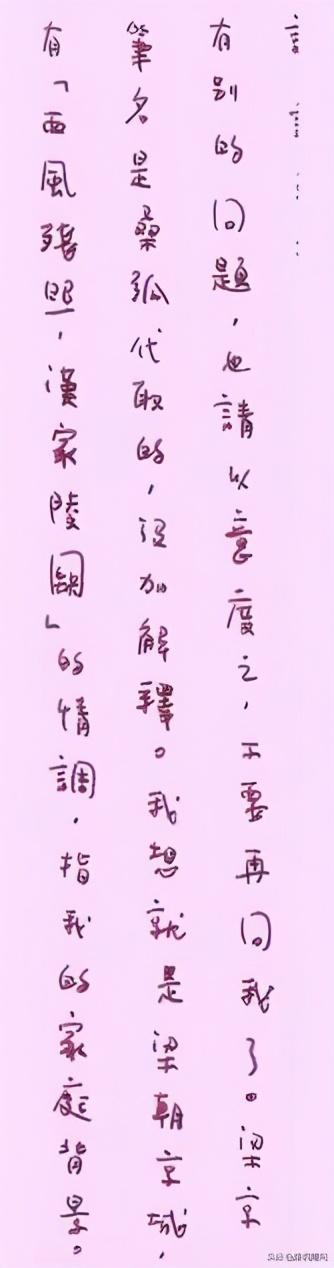 有別的問題，也請以意度之，不要再問我了。梁京
筆名是桑弧代取的，沒加解釋。我想就是梁朝京城，
有「西風殘照，漢家陵闕」的情調，指我的家庭背景。